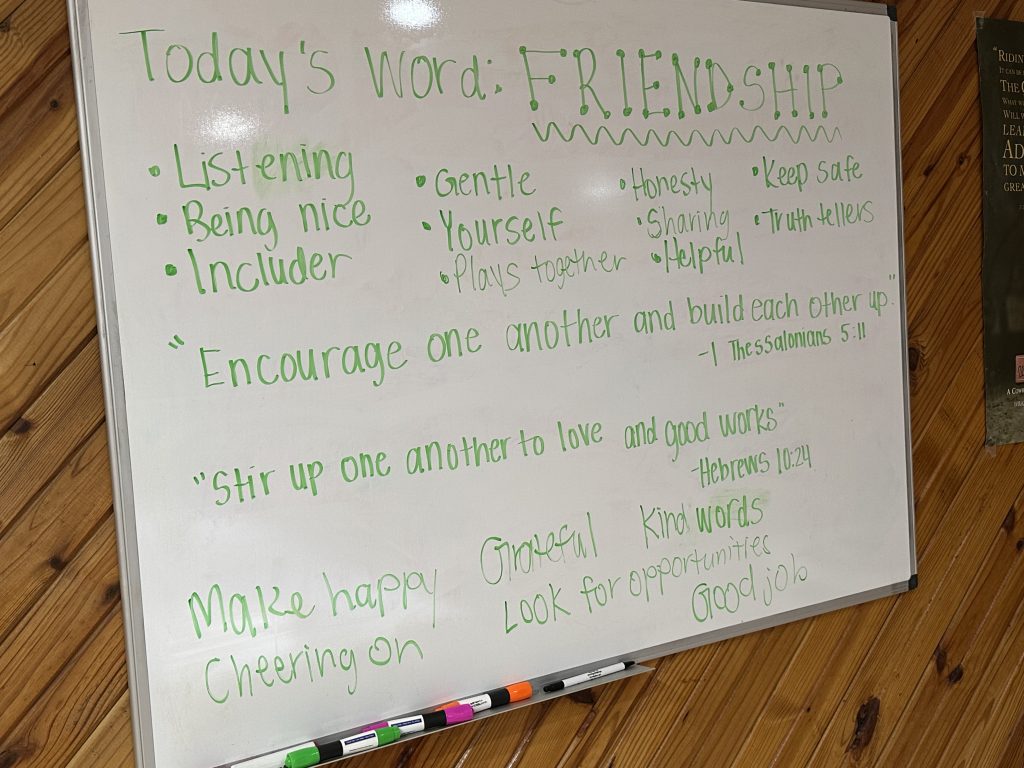 Today's Word: FRIENDSHIP
• Listening
• Being nice
• Includer
• Gentle
• Yourself
• Plays together
• Honesty
• Sharing
• Helpful
• Keep safe
• Truth tellers
"Encourage one another and build each other up."
-1 Thessalonians 5:11
"Stir up one another to love and good works"
-Hebrews 10:24
Make happy
Cheering on
Grateful
Kind words
Look for opportunities
Good job
"RIDIN
IT CAN BE
THE
WHAT
WILL
LEA
AD
TO M
GREA